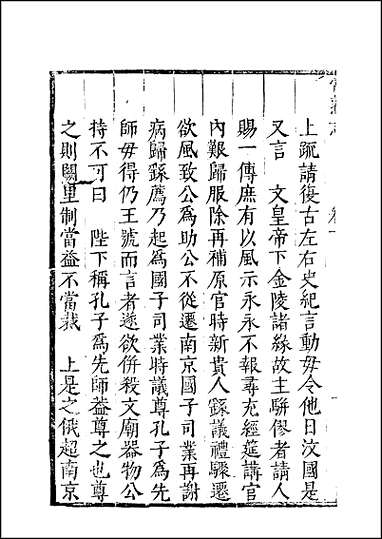 上疏請復古左右史紀言動毋令他日汶國是
又言　文皇帝下金陵諸緣故主騈僇者請人
賜一傳庶有以風示永永不報尋充經筵講官
內艱歸服除再補原官時新貴人繇議禮驟遷
欲風致公為助公不從遷南京國子司業再謝
病歸繇薦乃起為國子司業時議尊孔子為先
師毋得仍王號而言者遂欲併殺文廟器物公
持不可曰　陛下稱孔子為先師葢尊之也尊
之則闕里制當益不當裁　上是之俄超南京